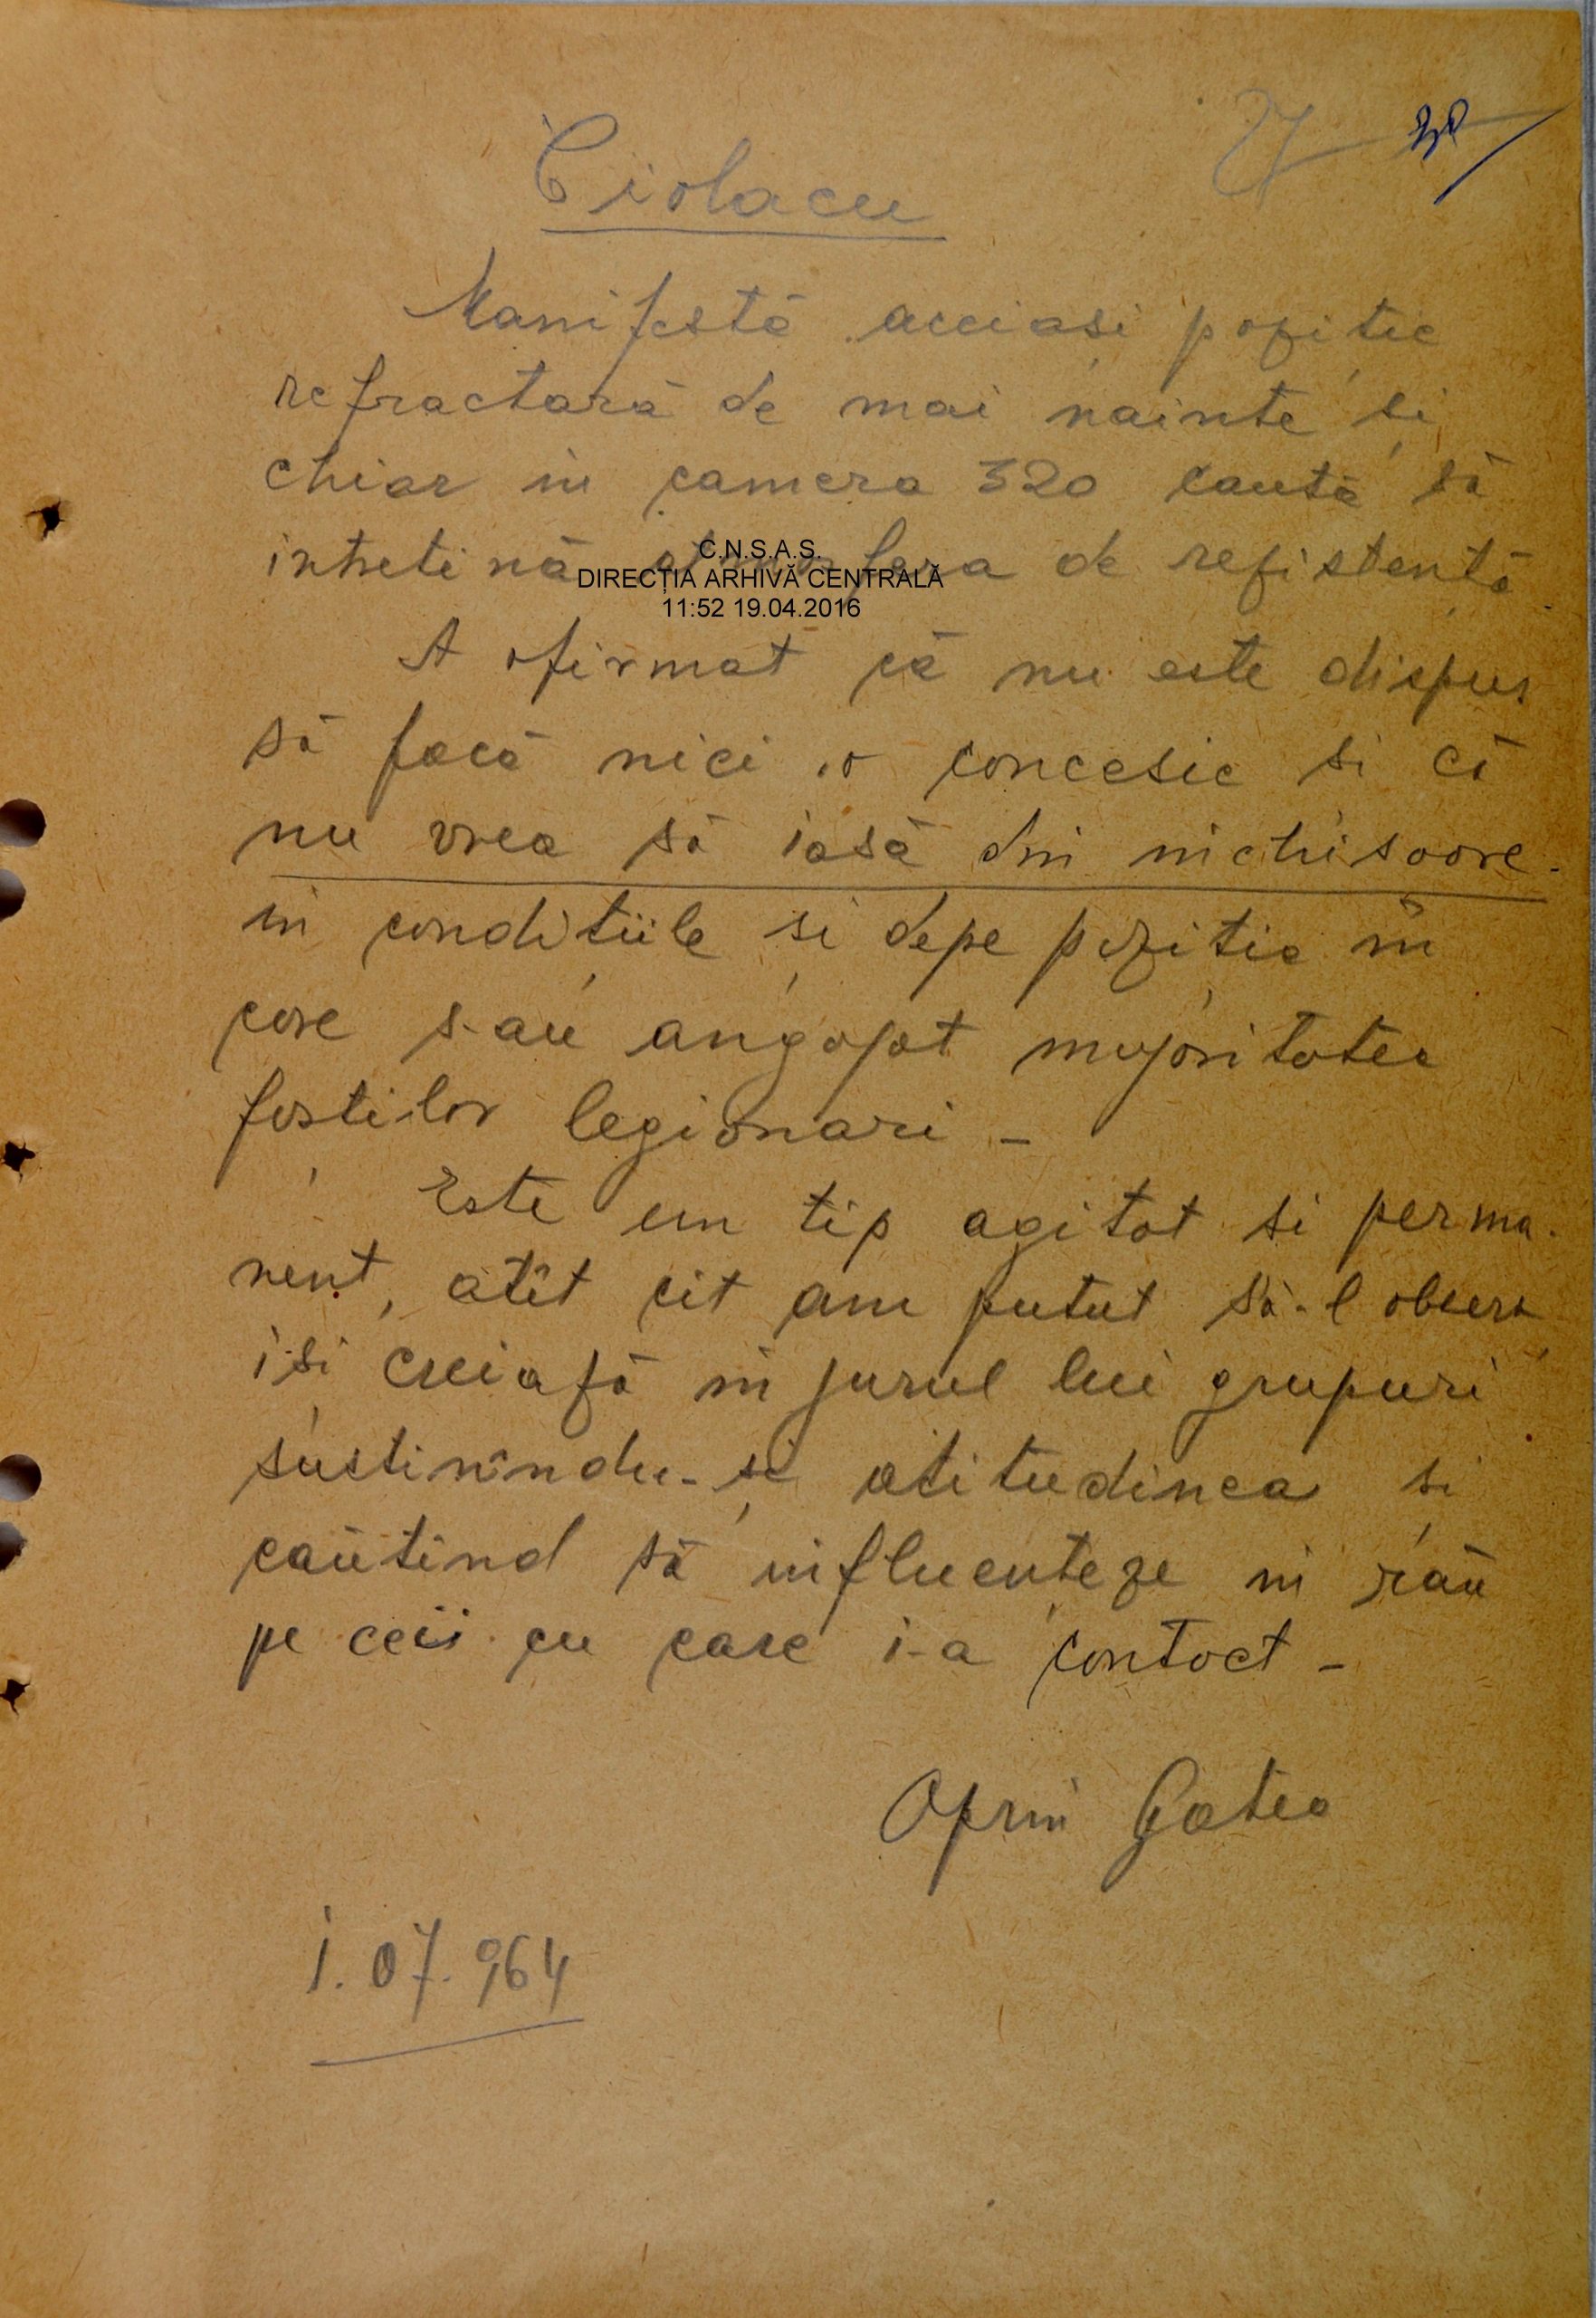 Ciolacu
Manifestă aceiași poziție
refractară de mai nainte și
chiar in camera 320 caută să
intrețină atmosfera de rezistență
C.N.S.A.S.
DIRECȚIA ARHIVĂ CENTRALĂ
11:52 19.04.2016
A afirmat că nu este dispus
să facă nici o concesie si că
nu vrea să iasă din inchisoare
in condițiile și depe poziția în
care s-au angajat majoritatea
foștilor legionari -
Este un tip agitat si perma-
nent, atît cît am putut să-l observ
iși creiază in jurul lui grupuri
susținîndu-și atitudinea și
căutind să influențeze in rău
pe ceii cu care i-a contact -
Oprin Gatea
1.07.964